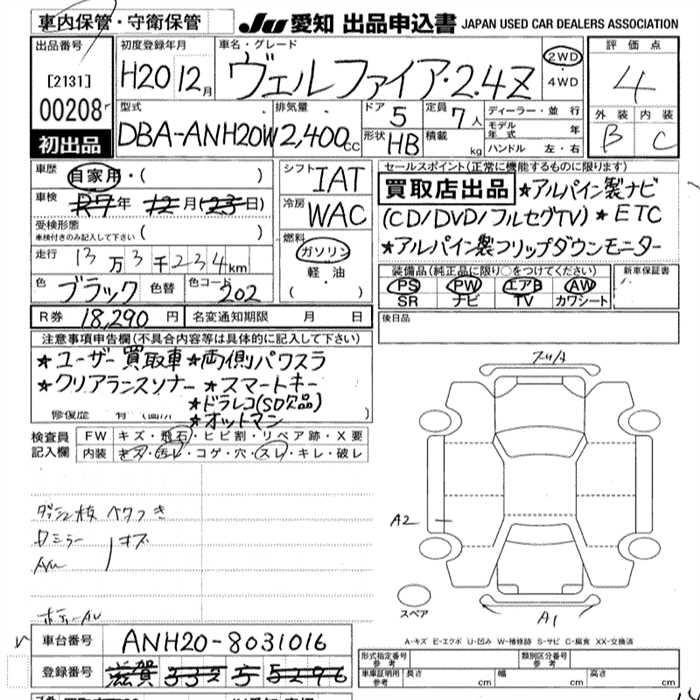 車内保管・守衛保管
JU 愛知 出品申込書 JAPAN USED CAR DEALERS ASSOCIATION
出品番号
[2131]
00208
初出品
初度登録年月
H20 12月
車名・グレード
ヴェルファイア・2.4Z
2WD
・
4WD
評価点
4
外装 内装
B C
型式
DBA-ANH20W
排気量
2,400cc
ドア 5
形状 HB
定員 7人
積載 kg
ディーラー・並行
モデル年式 年
ハンドル 左・右
車歴
自家用・( )
車検
R7年 12月(23日)
受検形態
車検付きのみ記入して下さい ( )
走行
13万3千234km
色 ブラック 色替 色コード 202
シフト IAT
冷房 WAC
燃料
ガソリン
軽油
( ・ )
セールスポイント(正常に機能するものに限ります)
買取店出品 ★アルパイン製ナビ
(CD/DVD/フルセグTV) ★ETC
★アルパイン製フリップダウンモニター
装備品(純正品に限り○をつけてください)
PS PW エアB AW
SR ナビ TV カワシート
新車保証書
R券 18,290円 名変通知期限 月 日
後日品
注意事項申告欄(不具合内容等は具体的に記入して下さい)
★ユーザー買取車 ★両側パワスラ
★クリアランスソナー ★スマートキー
★ドラレコ(SD欠品)
★オットマン
修復歴 有
検査員
記入欄
FW キズ・飛石・ヒビ割・リペア跡・X要
内装 キズ・汚レ・コゲ・穴・スレ・キレ・破レ
ベタつき
ミラー キズ
A2
A1
スペア
A-キズ E-エクボ U-凹ミ W-補修跡 S-サビ C-腐食 XX-交換済
車台番号 ANH20-8031016
登録番号 滋賀 332 5 5296
形式指定番号
参考
類別区分番号
参考
車庫証明用
参考
長さ cm
幅 cm
高さ cm